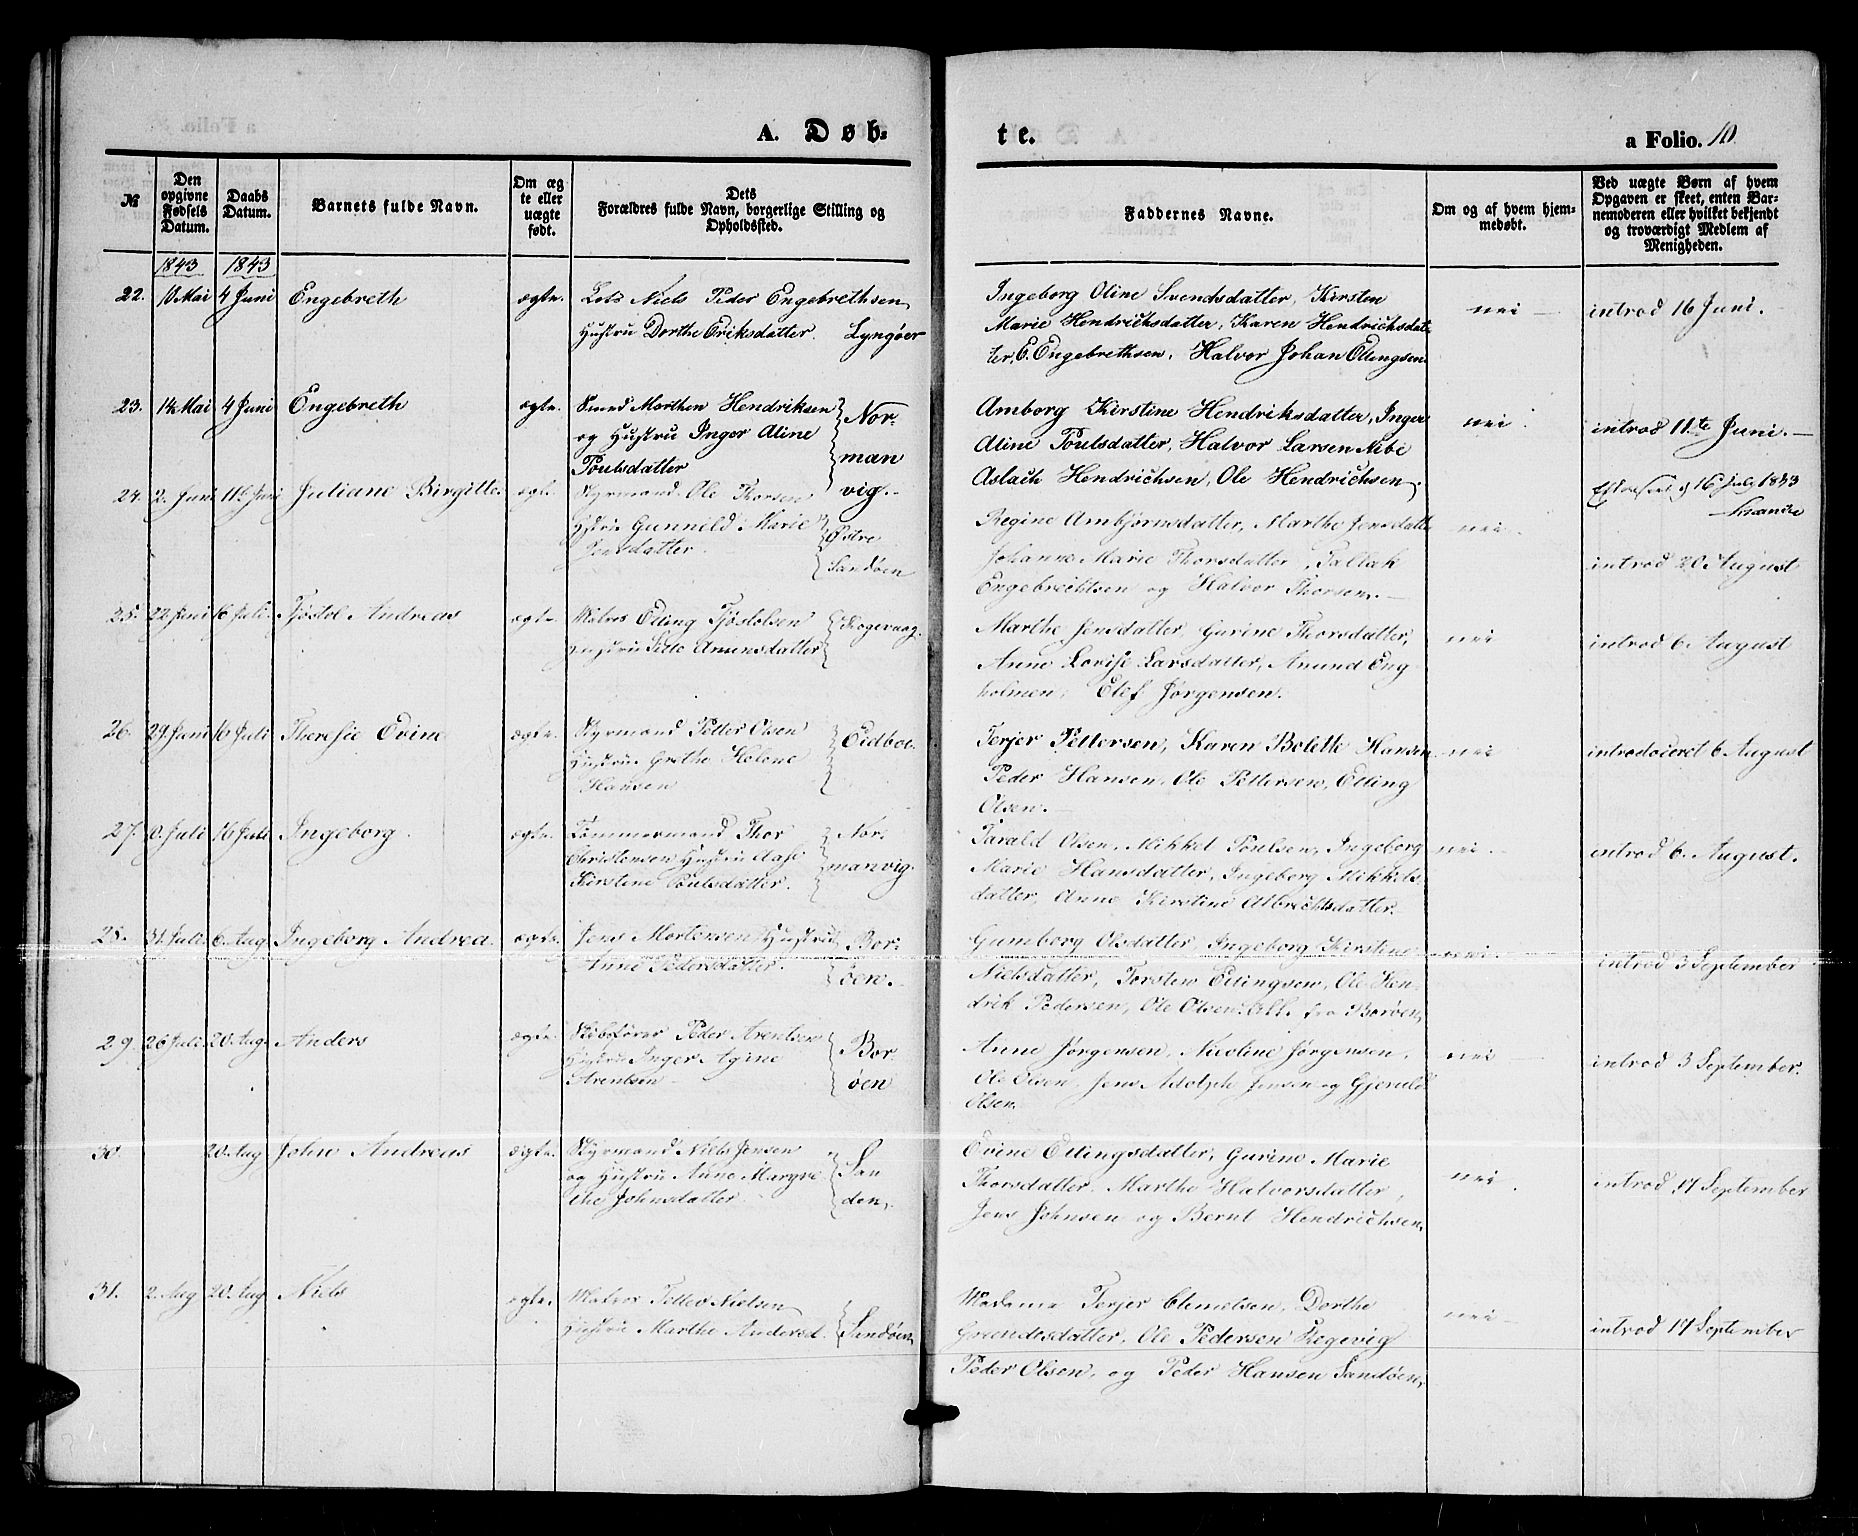 A. Døb-
te.
a Folio. 10
№
Den opgivne Fødsels Datum.
Daabs Datum.
Barnets fulde Navn.
Om ægte eller uægte født.
Dets Forældres fulde Navn, borgerlige Stilling og Opholdssted.
Faddernes Navne.
Om og af hvem hjemmedøbt.
Ved uægte Børn af hvem Opgaven er skeet, enten Barnemoderen eller hvilket bekjendt og troværdigt Medlem af Menigheden.
1843 1843
22. Mai 4 Juni Engebreth ægte. Lots Niels Peder Engebrethsen
Hustru Dorthe Eriksdatter. Lyngøer
Ingeborg Oline Svendsdatter, Kirsten
Marie Hendrichsdatter, Karen Hendrichsdat-
ter, E. Engebrethsen, Halvor Johan Ellingsen.
nei introd 16 Juni.
23. 14 Mai 4 Juni Engebreth ægte. Smed Morthen Hendriksen
og Hustru Inger Aline
Poulsdatter
Nor-
man
vig.
Amborg Kirstine Hendriksdatter, Inger
Aline Poulsdatter, Halvor Larsen Nibe
Aslach Hendrichsen, Ole Hendrichsen.
nei introd 11te Juni.
16 July 1843
24. 2. Juni 11te Juni Juliane Birgitte. ægte. Styrmand Ole Thorsen
Hustru Gunneld Marie
Jensdatter.
Østre
Sandøen
Regine Ambjørnsdatter, Marthe Jensdatter
Johanne Marie Thorsdatter, Tallak
Engebrechtsen og Halvor Thorsen.
nei introd 20 August
25. 22 Juni 16 Juli. Tjøstol Andreas ægte. Matros Elling Tjøstolsen
Hustru Sille Amunsdatter
Marthe Jensdatter, Gurine Thorsdatter,
Anne Lovise Larsdatter, Anund Eng
holmen, Elef Jørgensen.
nei introd 6 August
26. 29. Juni 16 Juli Theresie Evine ægte. Styrmand Petter Olsen
Hustru Grethe Helene
Hansen
Eidboe.
Terjer Pettersen, Karen Bolette Hansen
Peder Hansen, Ole Pettersen, Elling
Olsen.
nei introduceret 6 August
27. Juli 16 Juli Ingeborg. ægte. Tømmermand Thor
Christensen Hustru Aase
Kirstine Poulsdatter.
Nor-
manvig.
Tarald Olsen, Mikkel Poulsen, Ingeborg
Marie Hansdatter, Ingeborg Mikkels-
datter, Anne Kirstine Albrechtsdatter.
nei. introd 6. August.
28. 31. Juli. 6. Aug. Ingeborg Andrea. ægte. Jens Mortensen Hustru
Anne Pedersdatter.
Bor-
øen.
Gumborg Olsdatter, Ingeborg Kirstine
Nielsdatter, Torsten Ellingsen, Ole Hen-
drik Pedersen, Ole Olsen. alle fra Borøen.
nei. introd 3 September
29. 26 Juli. 20. Aug. Anders ægte. Skibsfører Peder Arentsen
Hustru Inger Agine
Arentsen
Bor
øen
Anne Jørgensen, Nicoline Jørgensen,
Ole Olsen, Jens Adolph Jensen og Gjeruld
Olsen.
nei introd 3 September.
30. 20. Aug John Andreas ægte. Styrmand Niels Jensen
og Hustru Anne Margre
the Johnsdatter
San
den.
Evine Ellingsdatter, Gurine Marie
Thorsdatter, Marthe Halvorsdatter,
Jens Johnsen og Bernt Hendrichsen.
nei introd 17 September
31. 2. Aug 20. Aug Niels ægte. Matros Peder Nielsen
Hustru Marthe Andersd. Sandøen
Madame Terjer Clemetsen, Dorthe
Ole Pedersen
Peder Olsen, og Peder Hansen Sandøen.
nei introd 17 September